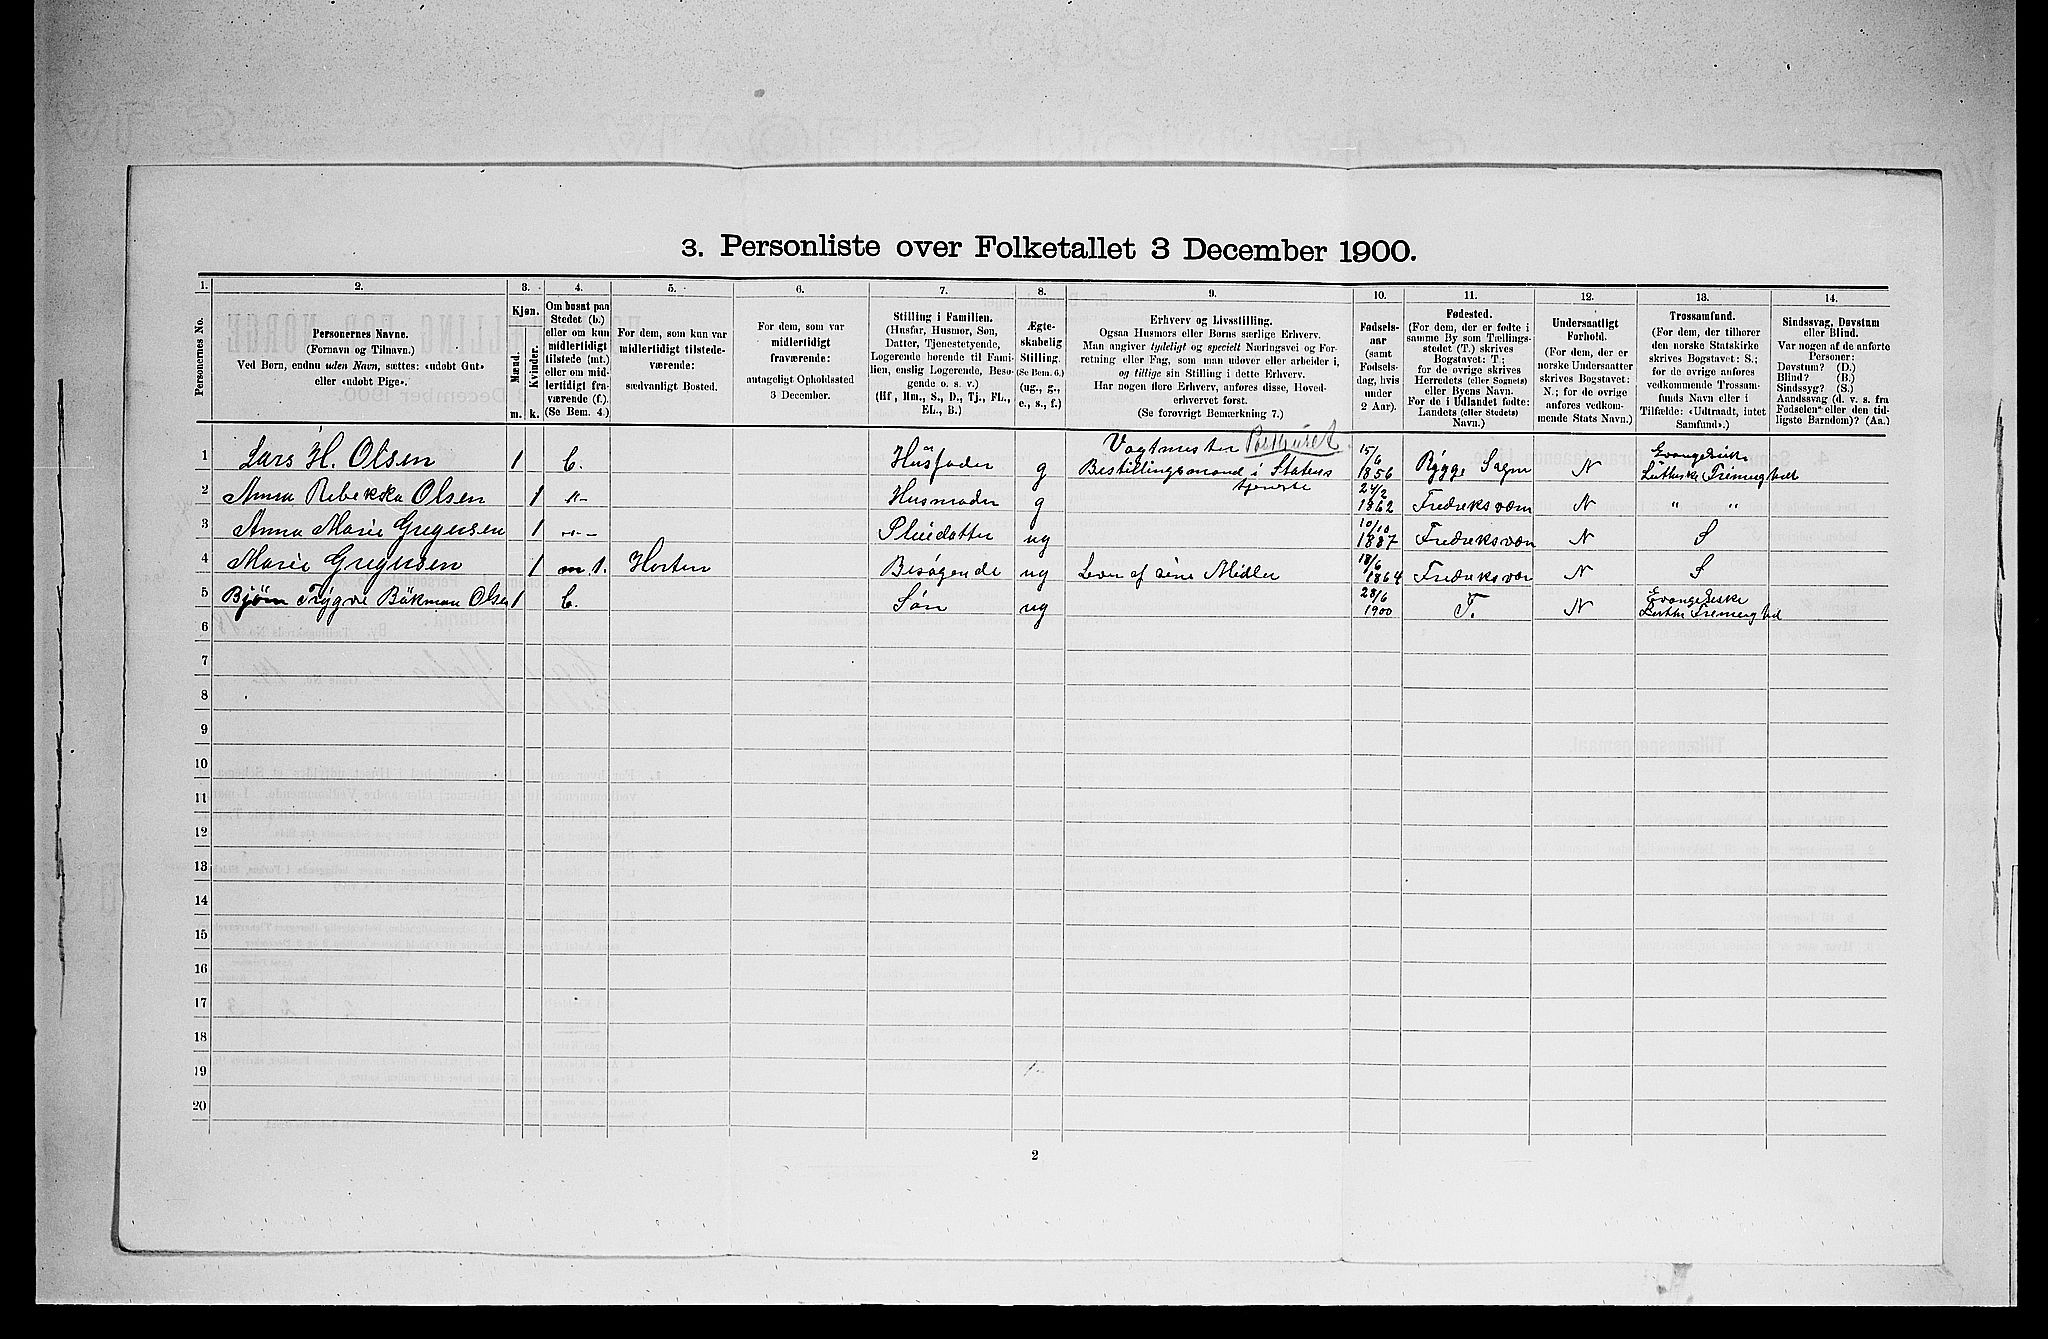 3. Personliste over Folketallet 3 December 1900.
1. 2. 3. 4. 5. 6. 7. 8. 9. 10. 11. 12. 13. 14.
Personernes No.
Personernes Navne.
(Fornavn og Tilnavn.)
Ved Børn, endnu uden Navn, sættes: «udøbt Gut»
eller «udøbt Pige».
Kjøn.
Mænd. Kvinder.
m. k.
Om bosat paa
Stedet (b.)
eller om kun
midlertidigt
tilstede (mt.)
eller om mid-
lertidigt fra-
værende (f.).
(Se Bem. 4.)
For dem, som kun var
midlertidigt tilstede-
værende:
sædvanligt Bosted.
For dem, som var
midlertidigt
fraværende:
antageligt Opholdssted
3 December.
Stilling i Familien.
(Husfar, Husmor, Søn,
Datter, Tjenestetyende,
Logerende hørende til Fami-
lien, enslig Logerende, Besø-
gende o. s. v.)
(Hf, Hm., S., D., Tj., FL.,
EL., B.)
Ægte-
skabelig
Stilling.
(Se Bem. 6.)
(ug., g.,
e., s., f.)
Erhverv og Livsstilling.
Ogsaa Husmors eller Børns særlige Erhverv.
Man angiver tydeligt og specielt Næringsvei og For-
retning eller Fag, som man udøver eller arbeider i,
og tillige sin Stilling i dette Erhverv.
Har nogen flere Erhverv, anføres disse, Hoved-
erhvervet først.
(Se forøvrigt Bemærkning 7.)
Fødsels-
aar
(samt
Fødsels-
dag, hvis
under
2 Aar).
Fødested.
(For dem, der er fødte i
samme By som Tællings-
stedet (T.) skrives
Bogstavet: T.;
for de øvrige skrives
Herredets (eller Sognets)
eller Byens Navn.
For de i Udlandet fødte:
Landets (eller Stedets)
Navn.)
Undersaatligt
Forhold.
(For dem, der er
norske Undersaatter
skrives Bogstavet:
N.; for de øvrige
anføres vedkom-
mende Stats Navn.)
Trossamfund.
(For dem, der tilhører
den norske Statskirke
skrives Bogstavet: S.;
for de øvrige anføres
vedkommende Trossam-
funds Navn eller i
Tilfælde: «Udtraadt, intet
Samfund».)
Sindssvag, Døvstum
eller Blind.
Var nogen af de anførte
Personer:
Døvstum? (D.)
Blind? (B.)
Sindssyg? (S.)
Aandssvag (d. v. s. fra
Fødselen eller den tid-
ligste Barndom)? (Aa.)
1 Lars H. Olsen 1 b. Husfader g Vagtmester Posthuset Bestillingsmand i Statens tjeneste 15/6 1856 Rygge Sogn N Evangeliske Lutherske Frimenighed
2 Anna Rebekka Olsen 1 "- Husmoder g 24/2 1862 Fredriksværn N " "
3 Anna Marie Gregersen 1 -"- Pleiedatter ug 10/10 1887 Fredriksværn N S
4 Marie Gregersen 1 m t. Horten Besøgende ug Lever af sine Midler 18/6 1864 Fredriksvær N S
5 Bjørn Trygve Bøkman Olsen 1 b. Søn ug 28/6 1900 T. N Evangeliske Luthe Frimenighed
6
7
8
9
10
11
12
13
14
15
16
17
18
19
20
2